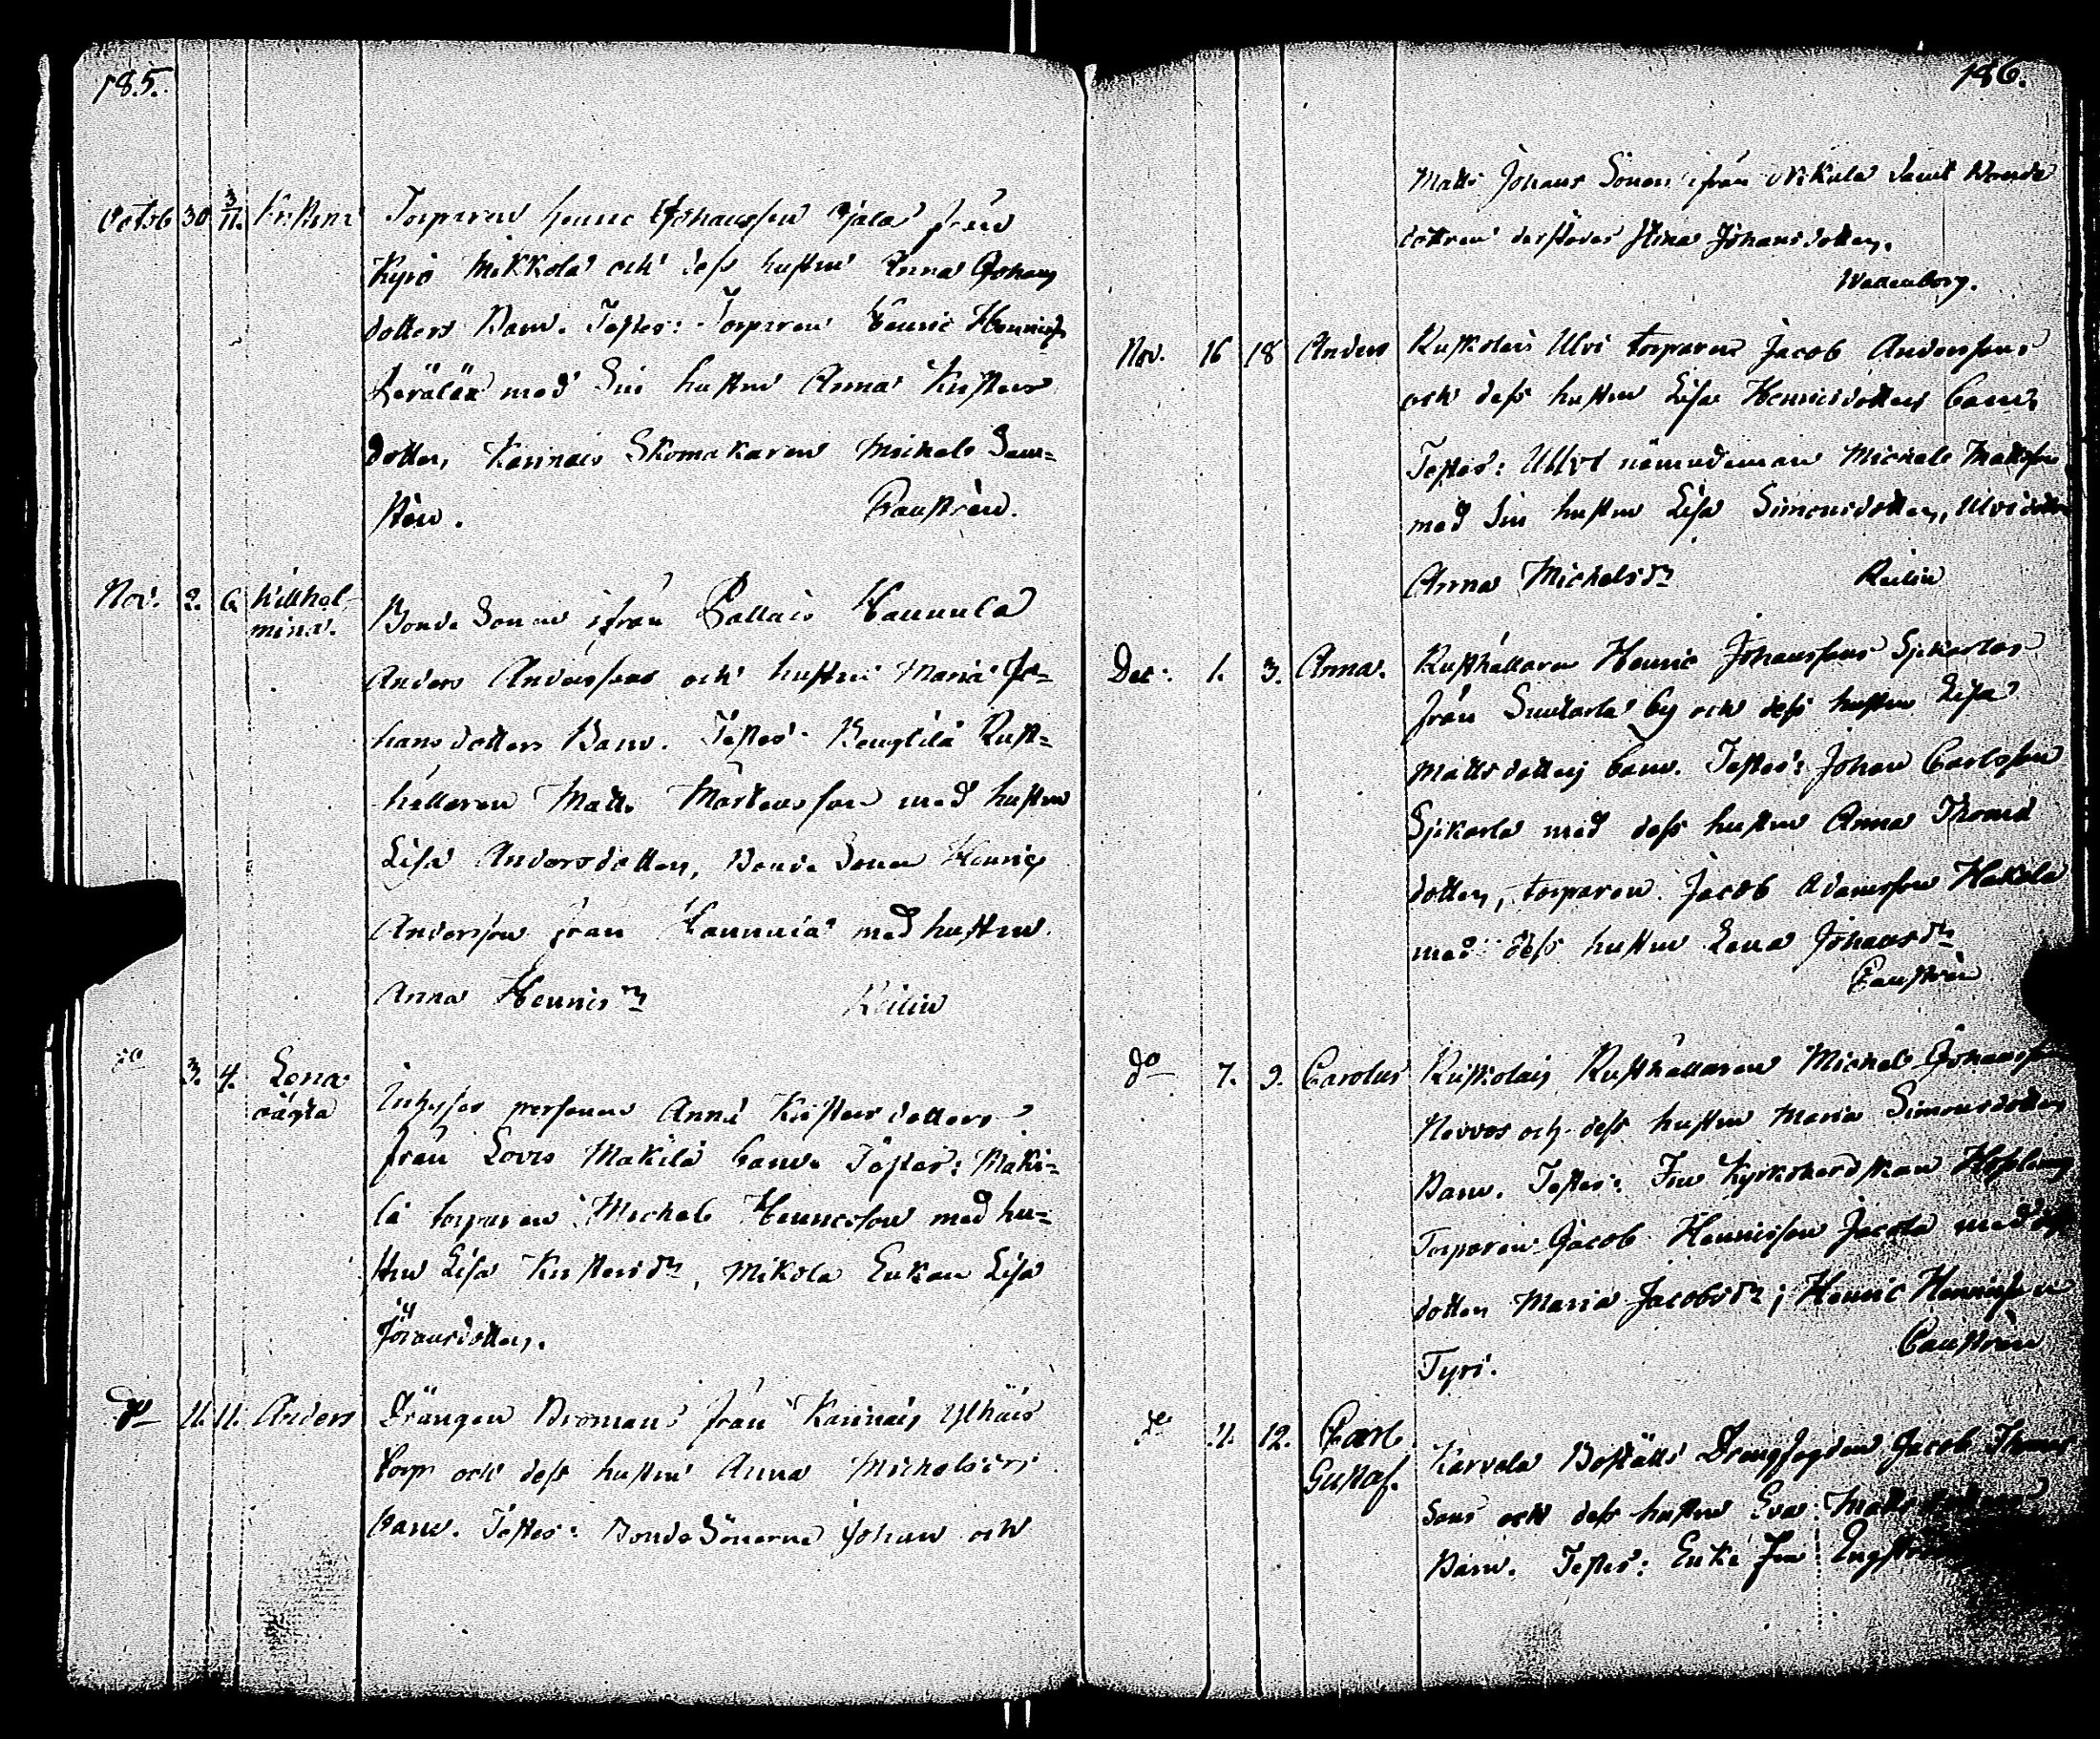 185.
Octob 30 3/11. Kristina Torparen Henric Johansson Ojalas från
Kyrö Mikkola och dess hustru Anna Johans
dotters Barn. Testes: Torparen Henric Henrics
Kerälä med Sin hustru Anna Kristers
dotter, Karinais Skomakaren Michel Sam=
stén. Paustrén.
Nov. 2. 6. Wilhel
mina. Bonde Sonen ifrån Pallais Hannula
Anders Anderssons och hustru Maria Jo=
hansdotters Barn. Testes: Bengtilä Rust=
hållaren Matts Mårtensson med hustru
Lisa Andersdotter, Bonde Sonen Henric
Andersson från med hustru
Anna Henricsdr Reilin
do 3. 4. Lena
oägta Inhyses personen Anna Kristersdotters
från Lovis Makila barn. Testes: Maki=
lä torparen Michel Henricsson med hu=
stru Lisa Kristersdr, Mikola Enkan Lisa
Jöransdotter.
do 11. 11. Anders Drängen Bromans från Karinais Ylhäis
torp och dess hustru Anna Michelsdrs
barn. Testes: Bonde Sönerne Johan och
186.
Matts Johans Söner ifrån Mikula samt Bonde
dottren derstädes Stina Johansdotter.
Wallenborg.
Nov. 16 18 Anders Ruskolais Ulvi torparen Jacob Anderssons
och dess hustru Lisa Henricsdotters barn.
Testes: Ullvi nämndeman Michel Mattsson
med Sin hustru Lisa Simonsdotter, Ulvi dotter
Anna Michelsdr Reilin
Dec. 1. 3. Anna. Rusthållaren Henric Johanssons Spikarlas
från Suutarla by och dess hustru Lisa
Mattsdotters barn. Testes: Johan Carlsson
Spikarla med dess hustru Anna Thomæ
dotter, torparen Jacob Adamsson Hakola
med dess hustru Lena Johansdr
Paustrén
do 7. 9. Carolus Ruskolais Rusthållaren Michel Johansson
Nervos och dess hustru Maria Simonsdotters
Barn. Testes: Fru Kyrkoherdskan
Torparen Jacob Henricsson Jacola med dess
dotter Maria Jacobsdr; Henric Henricsson
Tyri. Paustrén
do 11. 12. Carl
Gustaf. Karvela Boställs Drengfogden Jacob Thomas
Sons och dess hustru Eva Matts
Barn. Testes: Enke Fru